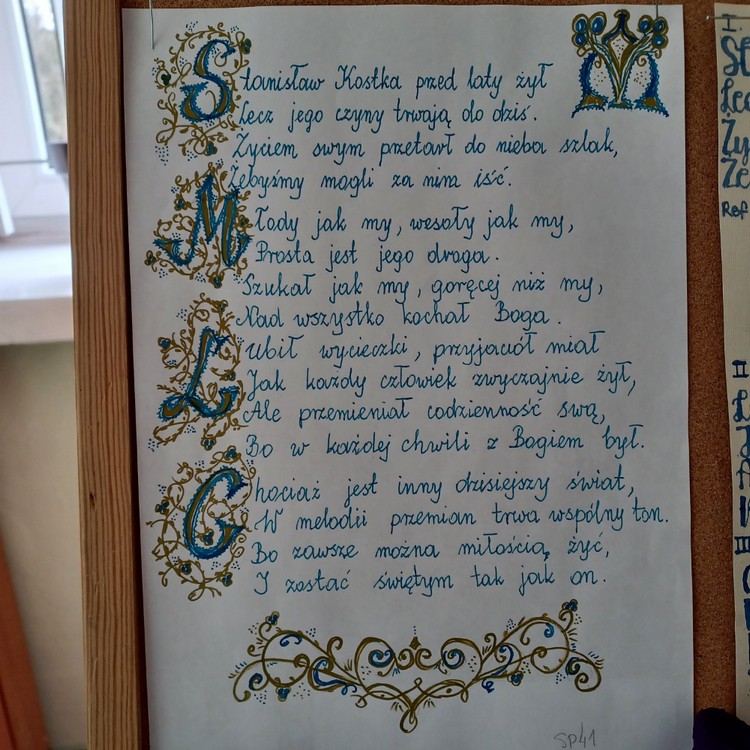 Stanisław Kostka przed laty żył
Lecz jego czyny trwają do dziś.
Życiem swym przetarł do nieba szlak,
Żebyśmy mogli za nim iść.
Młody jak my, wesoły jak my,
Prosta jest jego droga.
Szukał jak my, goręcej niż my,
Nad wszystko kochał Boga.
Lubił wycieczki, przyjaciół miał
Jak każdy człowiek zwyczajnie żył,
Ale przemieniał codzienność swą,
Bo w każdej chwili z Bogiem był.
Chociaż jest inny dzisiejszy świat,
W melodii przemian trwa wspólny ton.
Bo zawsze można miłością żyć,
I zostać świętym tak jak on.
SP41
I
Ref
II
III